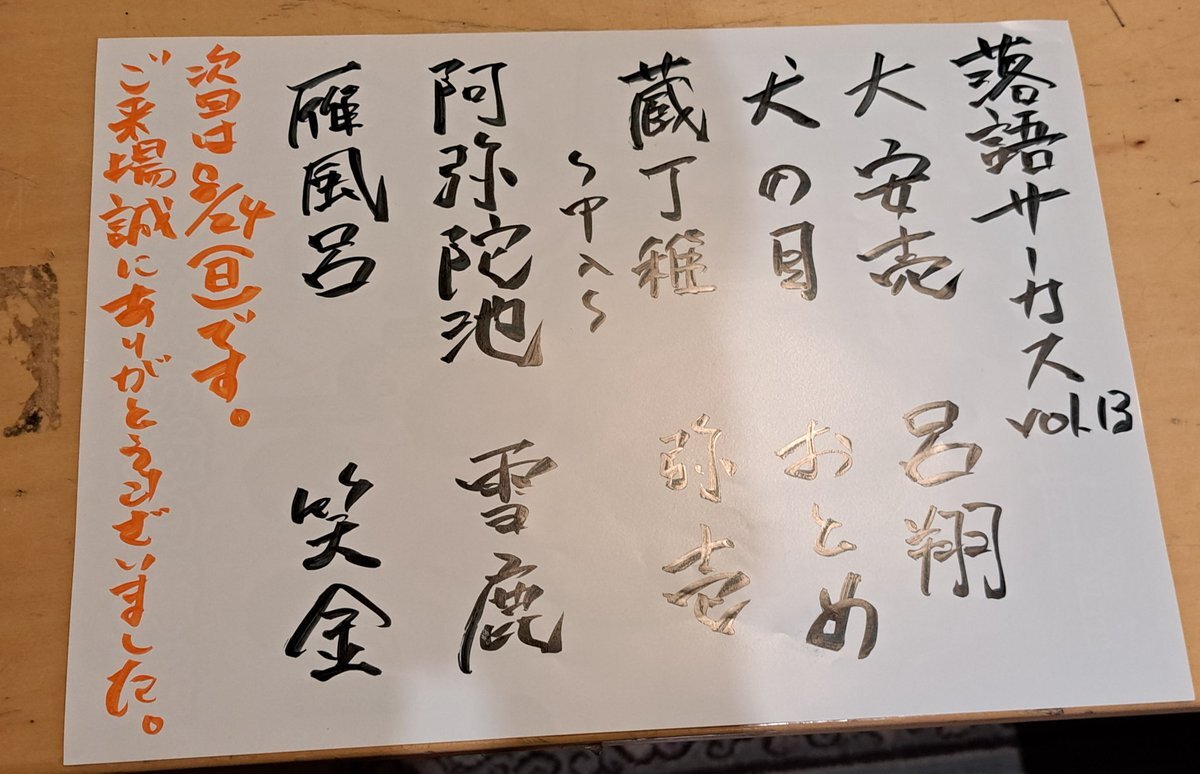 落語サーカス vol.13
大安売 呂翔
犬の目 おとめ
蔵丁稚 弥壱
~中入~
阿弥陀池 雪鹿
雁風呂 笑金
次回は8/24(日)です。
ご来場誠にありがとうございました。